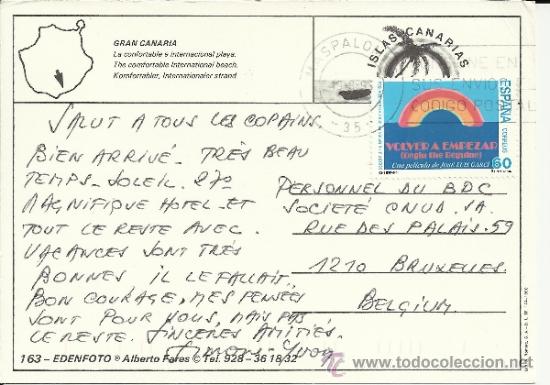 GRAN CANARIA
La confortable e internacional playa.
The comfortable International beach.
Komfortabler, Internationaler strand
ISLAS CANARIAS
CODIGO POSTAL
35
ESPAÑA
CORREOS
VOLVER A EMPEZAR
(Begin the Beguine)
Una película de JOSÉ LUIS GARCI
60
SALUT A TOUS LES COPAINS.
BIEN ARRIVÉ. TRÈS BEAU
TEMPS. SOLEIL. 27°
MAGNIFIQUE HOTEL. ET
TOUT LE RESTE AVEC.
VACANCES SONT TRÈS
BONNES IL LE FALLAIT.
BON COURAGE, MES PENSÉES
SONT POUR VOUS, MAIS PAS
LE RESTE. SINCERES AMITIÉS.
PERSONNEL DU BDC
SOCIETÉ ONUD. SA
RUE DES PALAIS. 59
1210 BRUXELLES.
BELGIUM.
163 - EDENFOTO ® Alberto Fares © Tel. 928 - 36 18 32
todocoleccion
www.todocoleccion.net